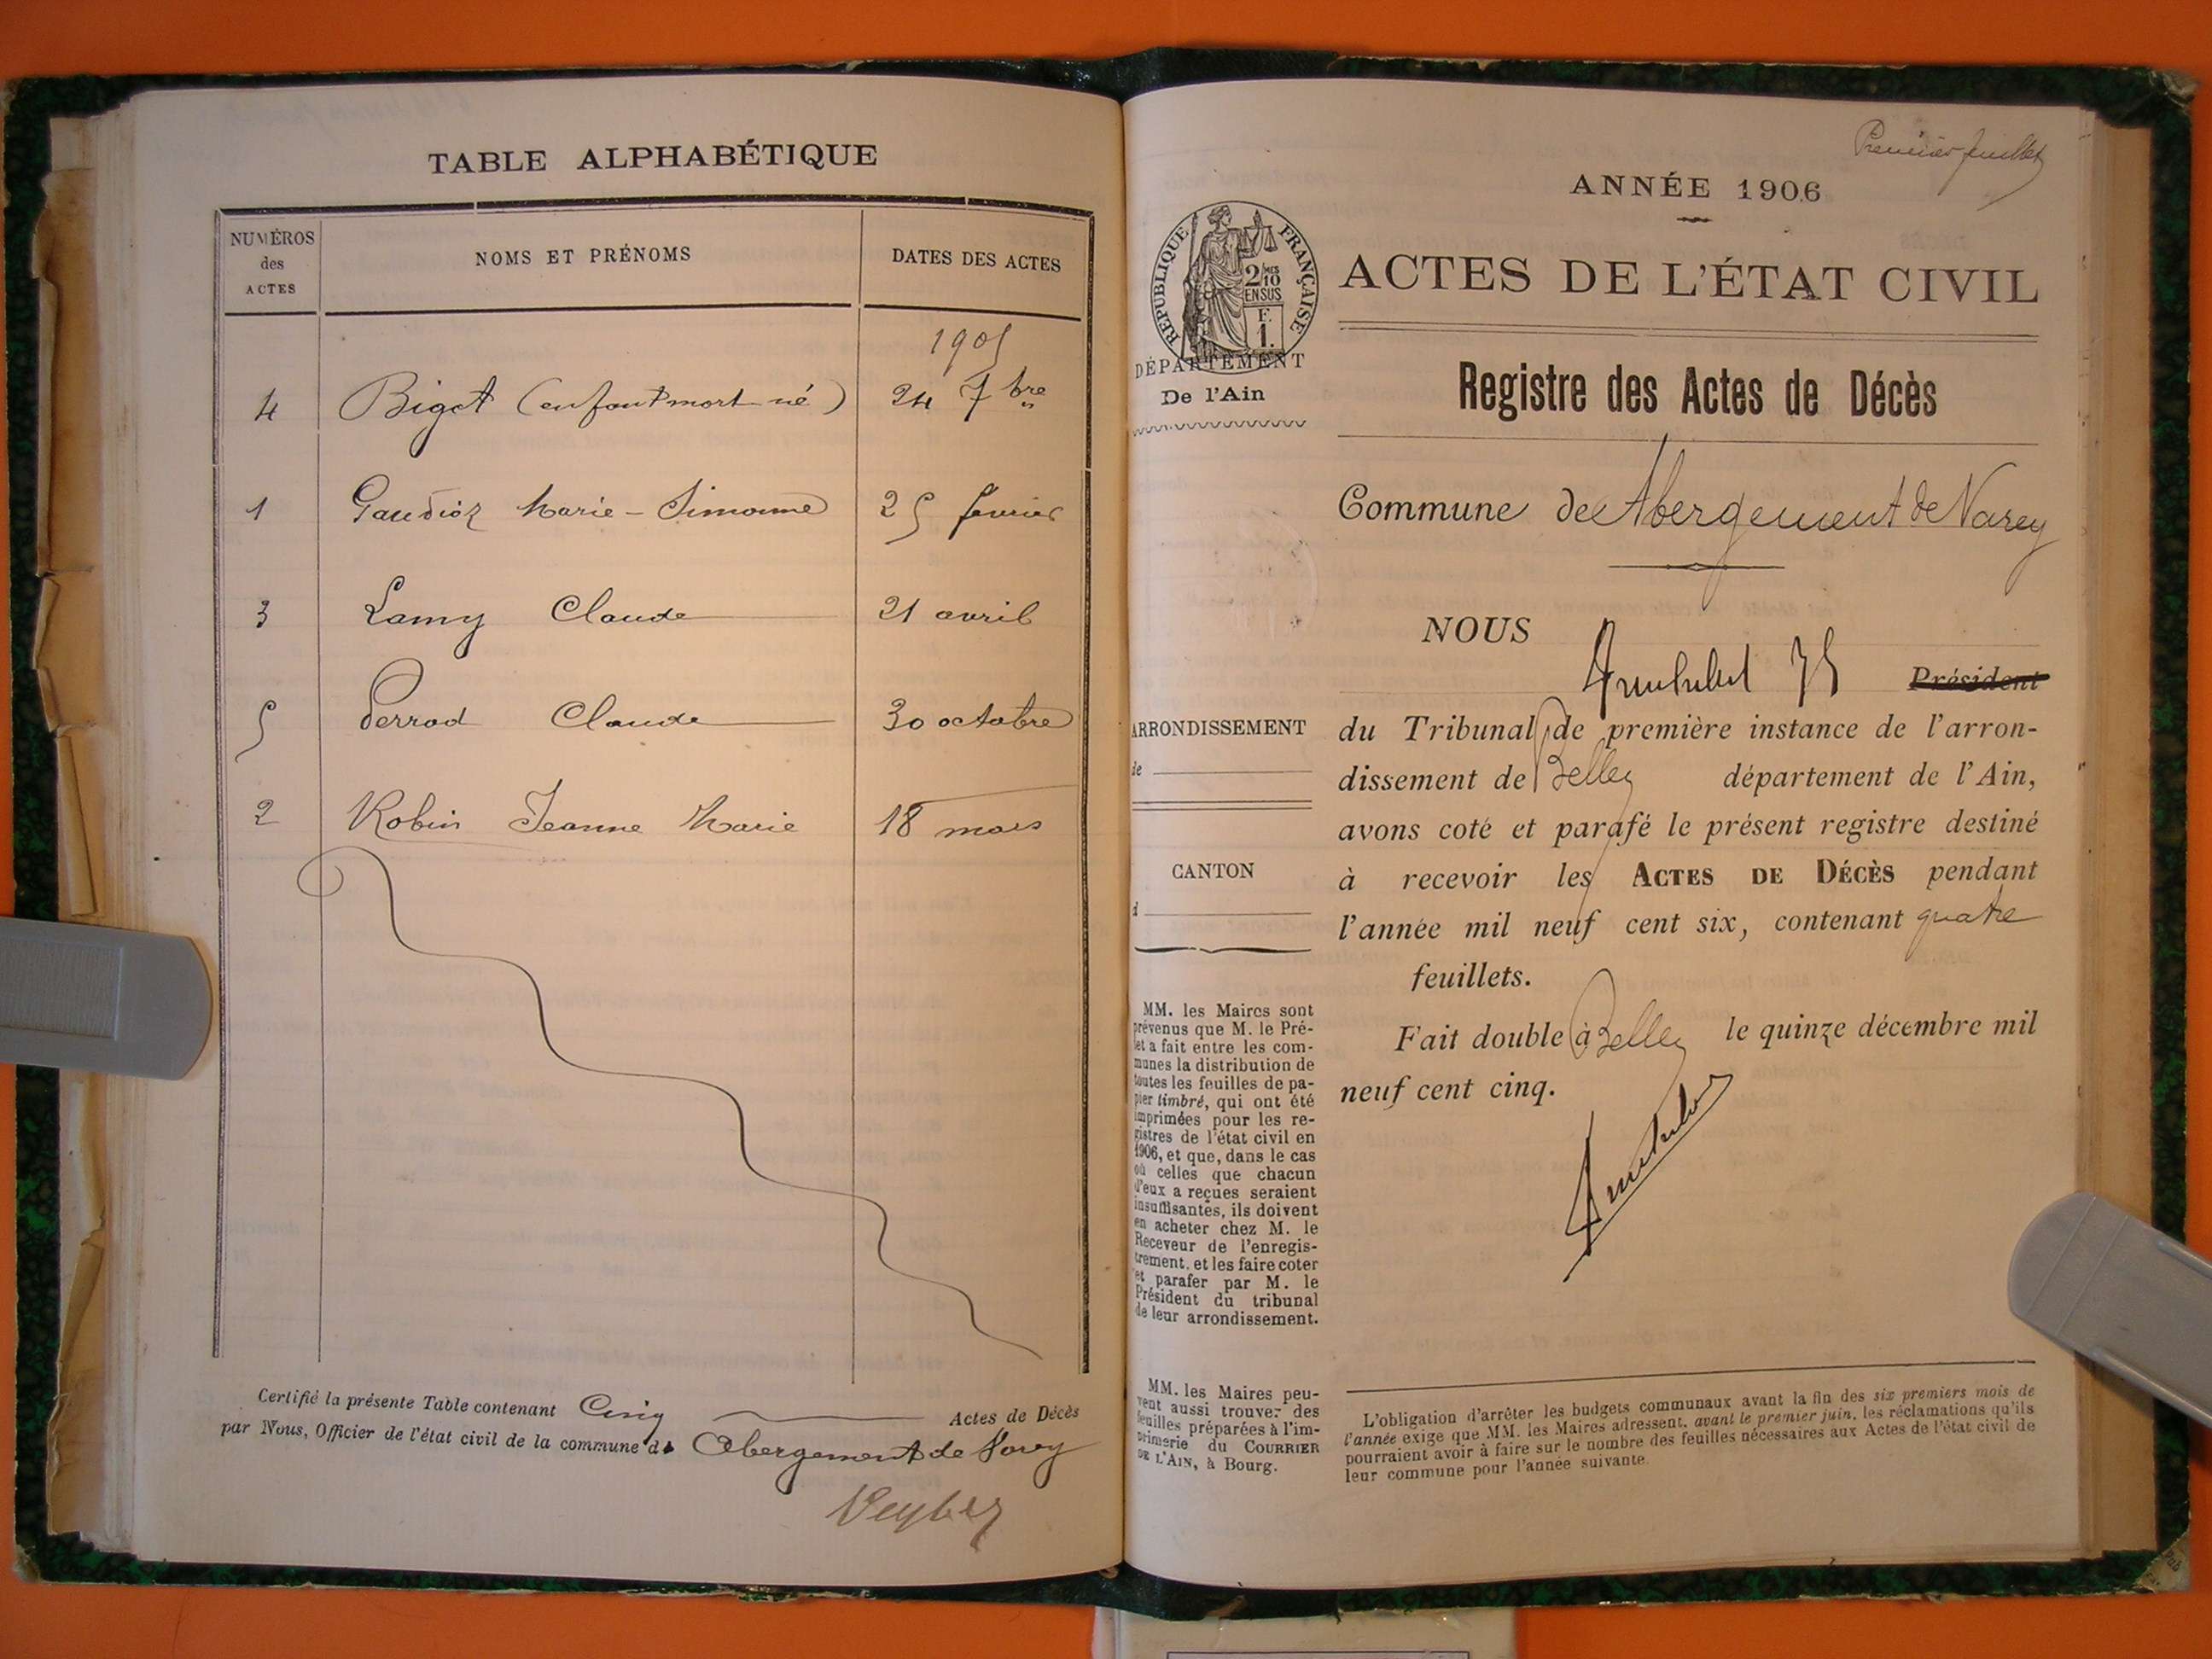 TABLE ALPHABÉTIQUE
NUMÉROS
des
ACTES
NOMS ET PRÉNOMS
DATES DES ACTES
1905
4 Bigot (enfant mort-né) 24 7bre
1 Gaudioz Marie-Simonne 25 février
3 Lamy Claude 21 avril
5 Perrod Claude 30 octobre
2 Robin Jeanne Marie 18 mars
Certifié la présente Table contenant Cinq Actes de Décès
par Nous, Officier de l'état civil de la commune d Abergement de Varey
Premier feuillet
ANNÉE 1906
RÉPUBLIQUE FRANÇAISE
2/10MES
EN SUS
F.
1.
DÉPARTEMENT
De l'Ain
ACTES DE L'ÉTAT CIVIL
Registre des Actes de Décès
Commune de Abergement de Varey
NOUS
Président
ARRONDISSEMENT
de
CANTON
d
du Tribunal de première instance de l'arron-
dissement de Belley département de l'Ain,
avons coté et parafé le présent registre destiné
à recevoir les ACTES DE DÉCÈS pendant
l'année mil neuf cent six, contenant quatre
feuillets.
Fait double à Belley le quinze décembre mil
neuf cent cinq.
MM. les Maires sont
prévenus que M. le Pré-
fet a fait entre les com-
munes la distribution de
toutes les feuilles de pa-
pier timbré, qui ont été
imprimées pour les re-
gistres de l'état civil en
1906, et que, dans le cas
où celles que chacun
d'eux a reçues seraient
insuffisantes, ils doivent
en acheter chez M. le
Receveur de l'enregis-
trement, et les faire coter
et parafer par M. le
Président du tribunal
de leur arrondissement.
MM. les Maires peu-
vent aussi trouver des
feuilles préparées à l'im-
primerie du COURRIER
DE L'AIN, à Bourg.
L'obligation d'arrêter les budgets communaux avant la fin des six premiers mois de
l'année exige que MM. les Maires adressent, avant le premier juin, les réclamations qu'ils
pourraient avoir à faire sur le nombre des feuilles nécessaires aux Actes de l'état civil de
leur commune pour l'année suivante.